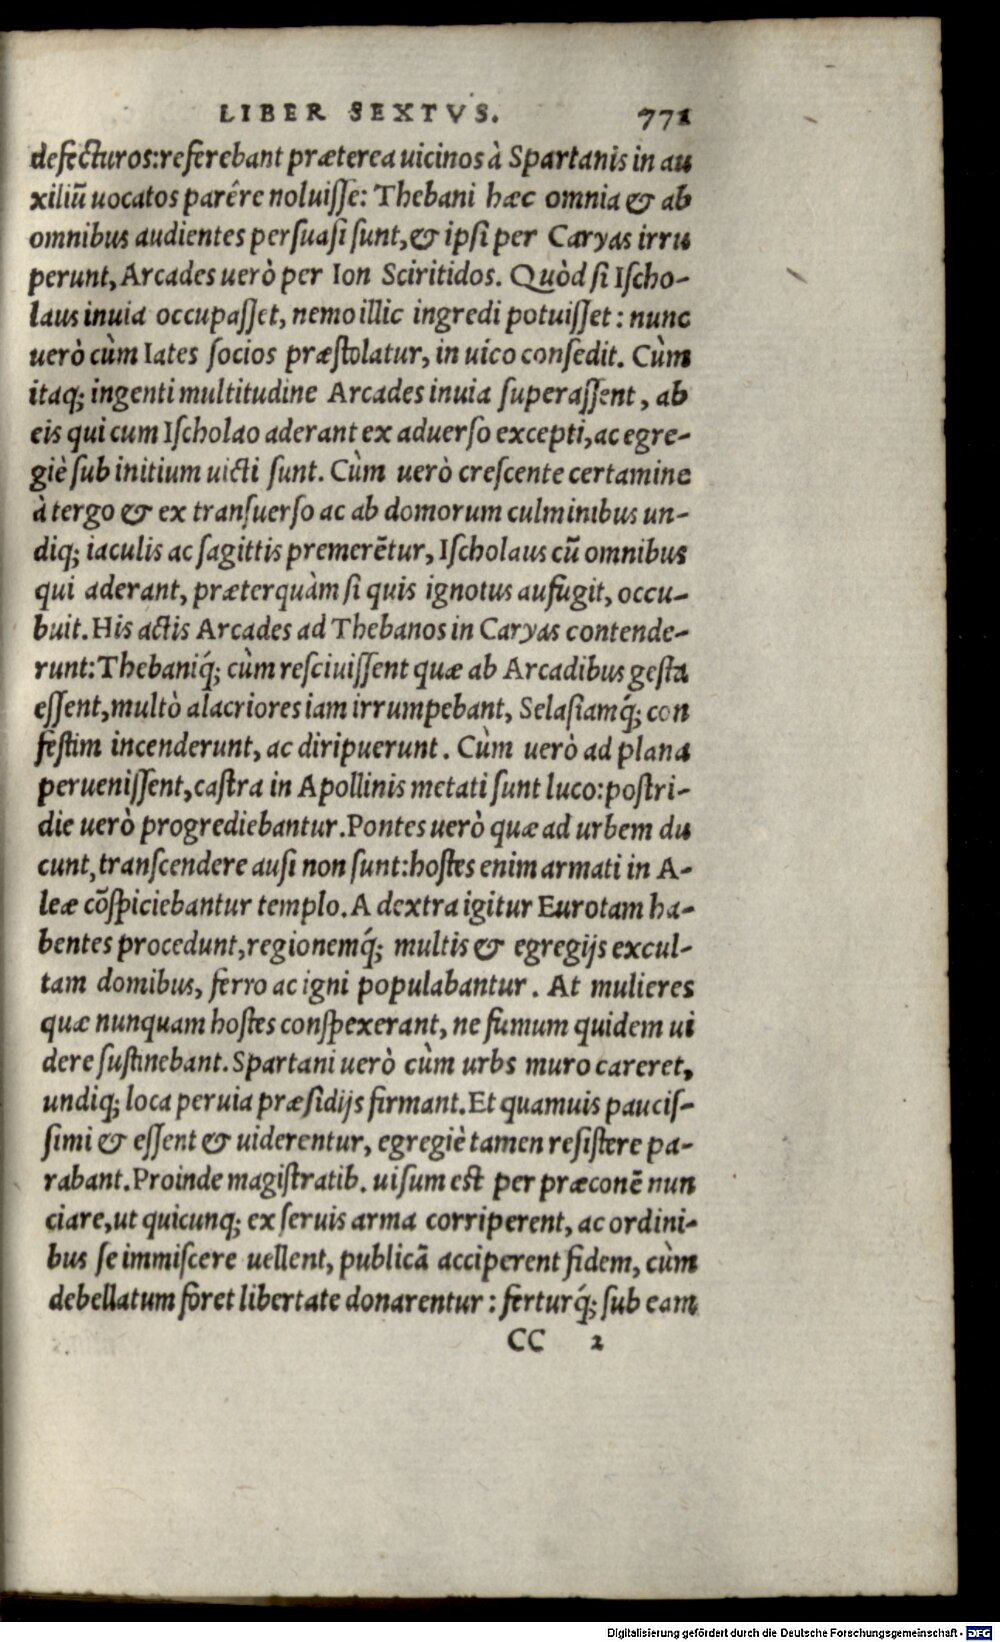 LIBER SEXTVS. 771
defecturos: referebant præterea uicinos à Spartanis in au
xiliũ uocatos parêre noluisse: Thebani hæc omnia & ab
omnibus audientes persuasi sunt, & ipsi per Caryas irru
perunt, Arcades uerò per Ion Sciritidos. Quòd si Ischo-
laus inuia occupasset, nemo illic ingredi potuisset: nunc
uerò cùm Iates socios præstolatur, in uico consedit. Cùm
itaq; ingenti multitudine Arcades inuia superassent, ab
eis qui cum Ischolao aderant ex aduerso excepti, ac egre-
giè sub initium uicti sunt. Cùm uerò crescente certamine
à tergo & ex transuerso ac ab domorum culminibus un-
diq; iaculis ac sagittis premerẽtur, Ischolaus cũ omnibus
qui aderant, præterquàm si quis ignotus aufugit, occu-
buit. His actis Arcades ad Thebanos in Caryas contende-
runt: Thebaniq́; cùm resciuissent quæ ab Arcadibus gesta
essent, multò alacriores iam irrumpebant, Selasiamq́; con
festim incenderunt, ac diripuerunt. Cùm uerò ad plana
peruenissent, castra in Apollinis metati sunt luco: postri-
die uerò progrediebantur. Pontes uerò quæ ad urbem du
cunt, transcendere ausi non sunt: hostes enim armati in A-
leæ cõspiciebantur templo. A dextra igitur Eurotam ha-
bentes procedunt, regionemq́; multis & egregijs excul-
tam domibus, ferro ac igni populabantur. At mulieres
quæ nunquam hostes conspexerant, ne fumum quidem ui
dere sustinebant. Spartani uerò cùm urbs muro careret,
undiq; loca peruia præsidijs firmant. Et quamuis paucis-
simi & essent & uiderentur, egregiè tamen resistere pa-
rabant. Proinde magistratib. uisum est per præconẽ nun
ciare, ut quicunq; ex seruis arma corriperent, ac ordini-
bus se immiscere uellent, publicã acciperent fidem, cùm
debellatum foret libertate donarentur: ferturq́; sub eam
CC 2
Digitalisierung gefördert durch die Deutsche Forschungsgemeinschaft - DFG